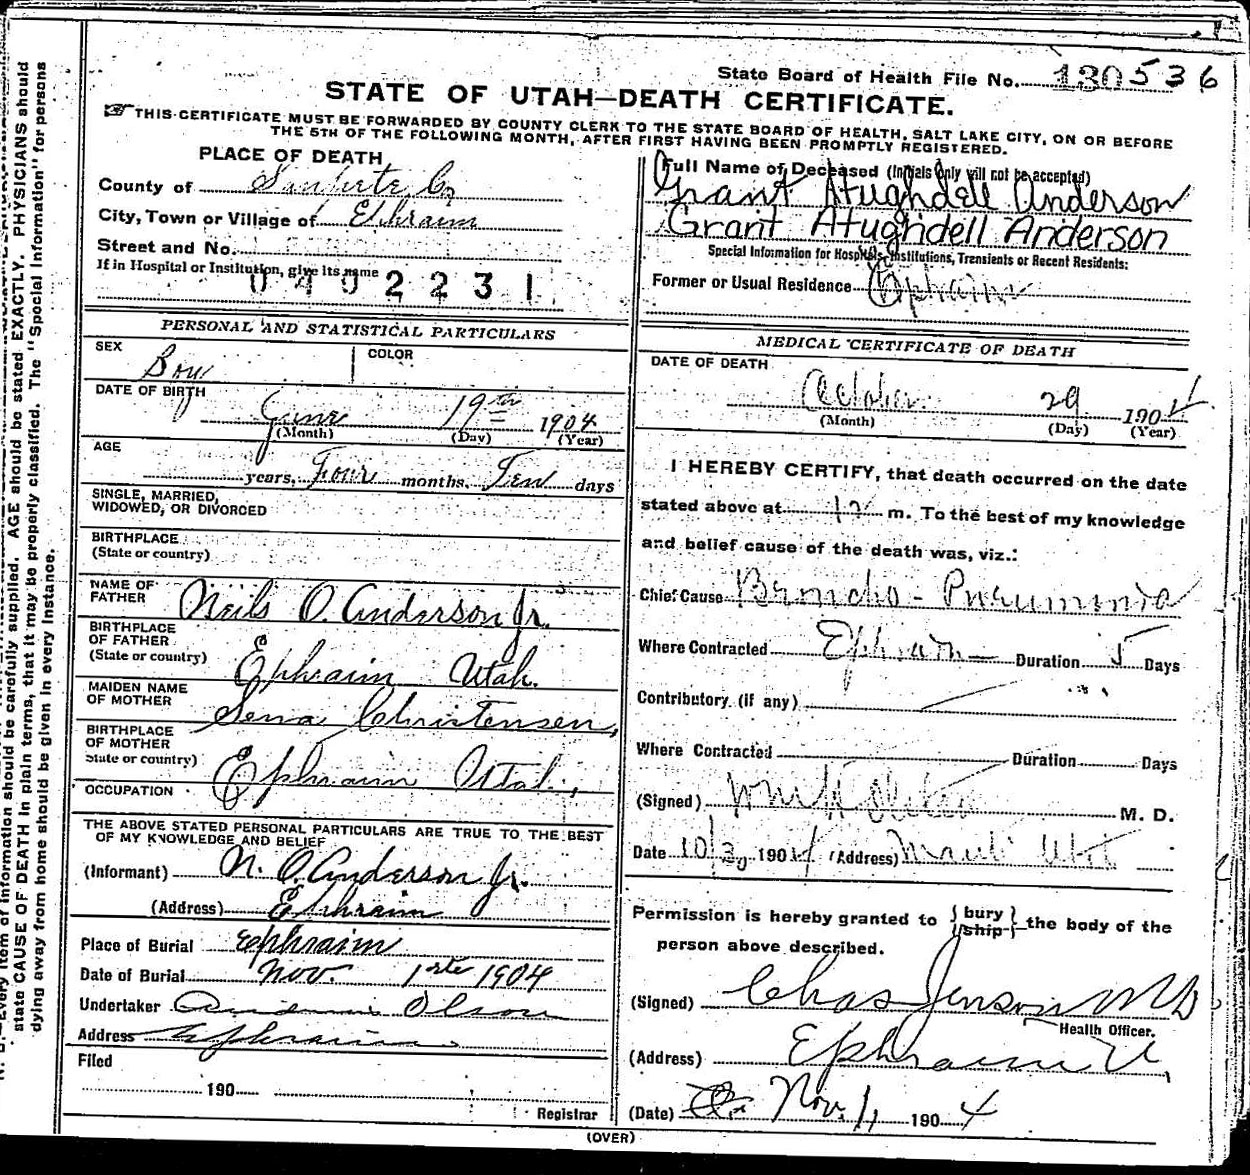 State Board of Health File No. 130536
STATE OF UTAH—DEATH CERTIFICATE.
THIS CERTIFICATE MUST BE FORWARDED BY COUNTY CLERK TO THE STATE BOARD OF HEALTH, SALT LAKE CITY, ON OR BEFORE
THE 5TH OF THE FOLLOWING MONTH, AFTER FIRST HAVING BEEN PROMPTLY REGISTERED.
PLACE OF DEATH
County of Sanpete Co
City, Town or Village of Ephraim
Street and No.
If in Hospital or Institution, give its name
0402231
PERSONAL AND STATISTICAL PARTICULARS
SEX Boy COLOR
DATE OF BIRTH
June 19th 1904
(Month) (Day) (Year)
AGE
years, Four months, Ten days
SINGLE, MARRIED,
WIDOWED, OR DIVORCED
BIRTHPLACE
(State or country)
NAME OF
FATHER Neils O. Anderson Jr.
BIRTHPLACE
OF FATHER
(State or country) Ephraim Utah.
MAIDEN NAME
OF MOTHER Sena Christensen,
BIRTHPLACE
OF MOTHER
State or country) Ephraim Utah,
OCCUPATION
THE ABOVE STATED PERSONAL PARTICULARS ARE TRUE TO THE BEST
OF MY KNOWLEDGE AND BELIEF
(Informant) N. O. Anderson Jr.
(Address) Ephraim
Place of Burial Ephraim
Date of Burial Nov. 1ste 1904
Undertaker Olson
Address Ephraim
Filed
190
Registrar
Full Name of Deceased (Initials only will not be accepted)
Grant Atughdell Anderson
Grant Atughdell Anderson
Special Information for Hospitals, Institutions, Transients or Recent Residents:
Former or Usual Residence Ephraim
MEDICAL CERTIFICATE OF DEATH
DATE OF DEATH
October 29 1904
(Month) (Day) (Year)
I HEREBY CERTIFY, that death occurred on the date
stated above at 12 m. To the best of my knowledge
and belief cause of the death was, viz.:
Chief Cause Broncho-Pneumonia
Where Contracted Ephraim Duration 5 Days
Contributory (if any)
Where Contracted Duration Days
(Signed) M. D.
Date 10/30 1904 (Address) Manti Utah
Permission is hereby granted to {bury
ship} the body of the
person above described.
(Signed) Chas Jenson MD
Health Officer.
(Address) Ephraim U,
(Date) Nov. 1, 1904
(OVER)
N. B.—Every item of information should be carefully supplied. AGE should be stated EXACTLY. PHYSICIANS should
state CAUSE OF DEATH in plain terms, that it may be properly classified. The "Special Information" for persons
dying away from home should be given in every instance.